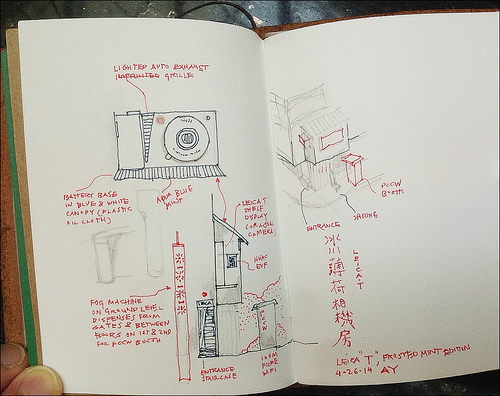 LIGHTED AUTO EXHAUST
IMPRINTED GRILLE
BATTERY BASE
IN BLUE & WHITE
CANOPY (PLASTIC
OIL CLOTH)
AQUA BLUE
MINT
LEICA T
SHELF
DISPLAY
CAMERA)
HVAC
FOG MACHINE
ON GROUND LEVEL
DISPENSES FROM
GATES & BETWEEN
DOORS ON 1ST & 2ND
FOR PCCW BOOTH
ENTRANCE
STAIRCASE
WIFI
PCCW
BOOTH
ENTRANCE
SHRINE
冰
川
薄
荷
相
機
房
LEICA T
LEICA "T", FROSTED MINT EDITION
4-26-14 AY